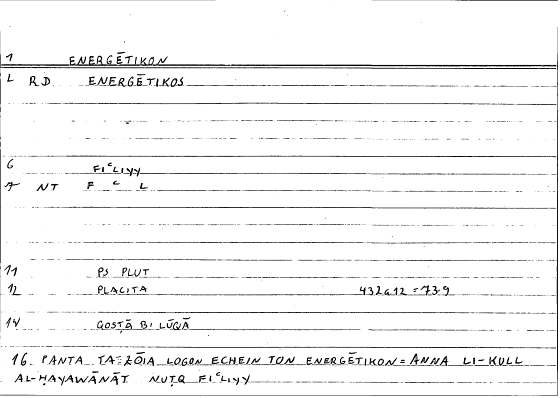 1 ENERGĒTIKON
L RD ENERGĒTIKOS
6 FIʿLIYY
7 NT F ʿ L
11 PS PLUT
12 PLACITA 432a12 = 73.9
14 QOSṬĀ BI LŪQĀ
16. PANTA TA ZŌIA LOGON ECHEIN TON ENERGĒTIKON = ANNA LI-KULL
AL-ḤAYAWĀNĀT NUṬQ FIʿLIYY